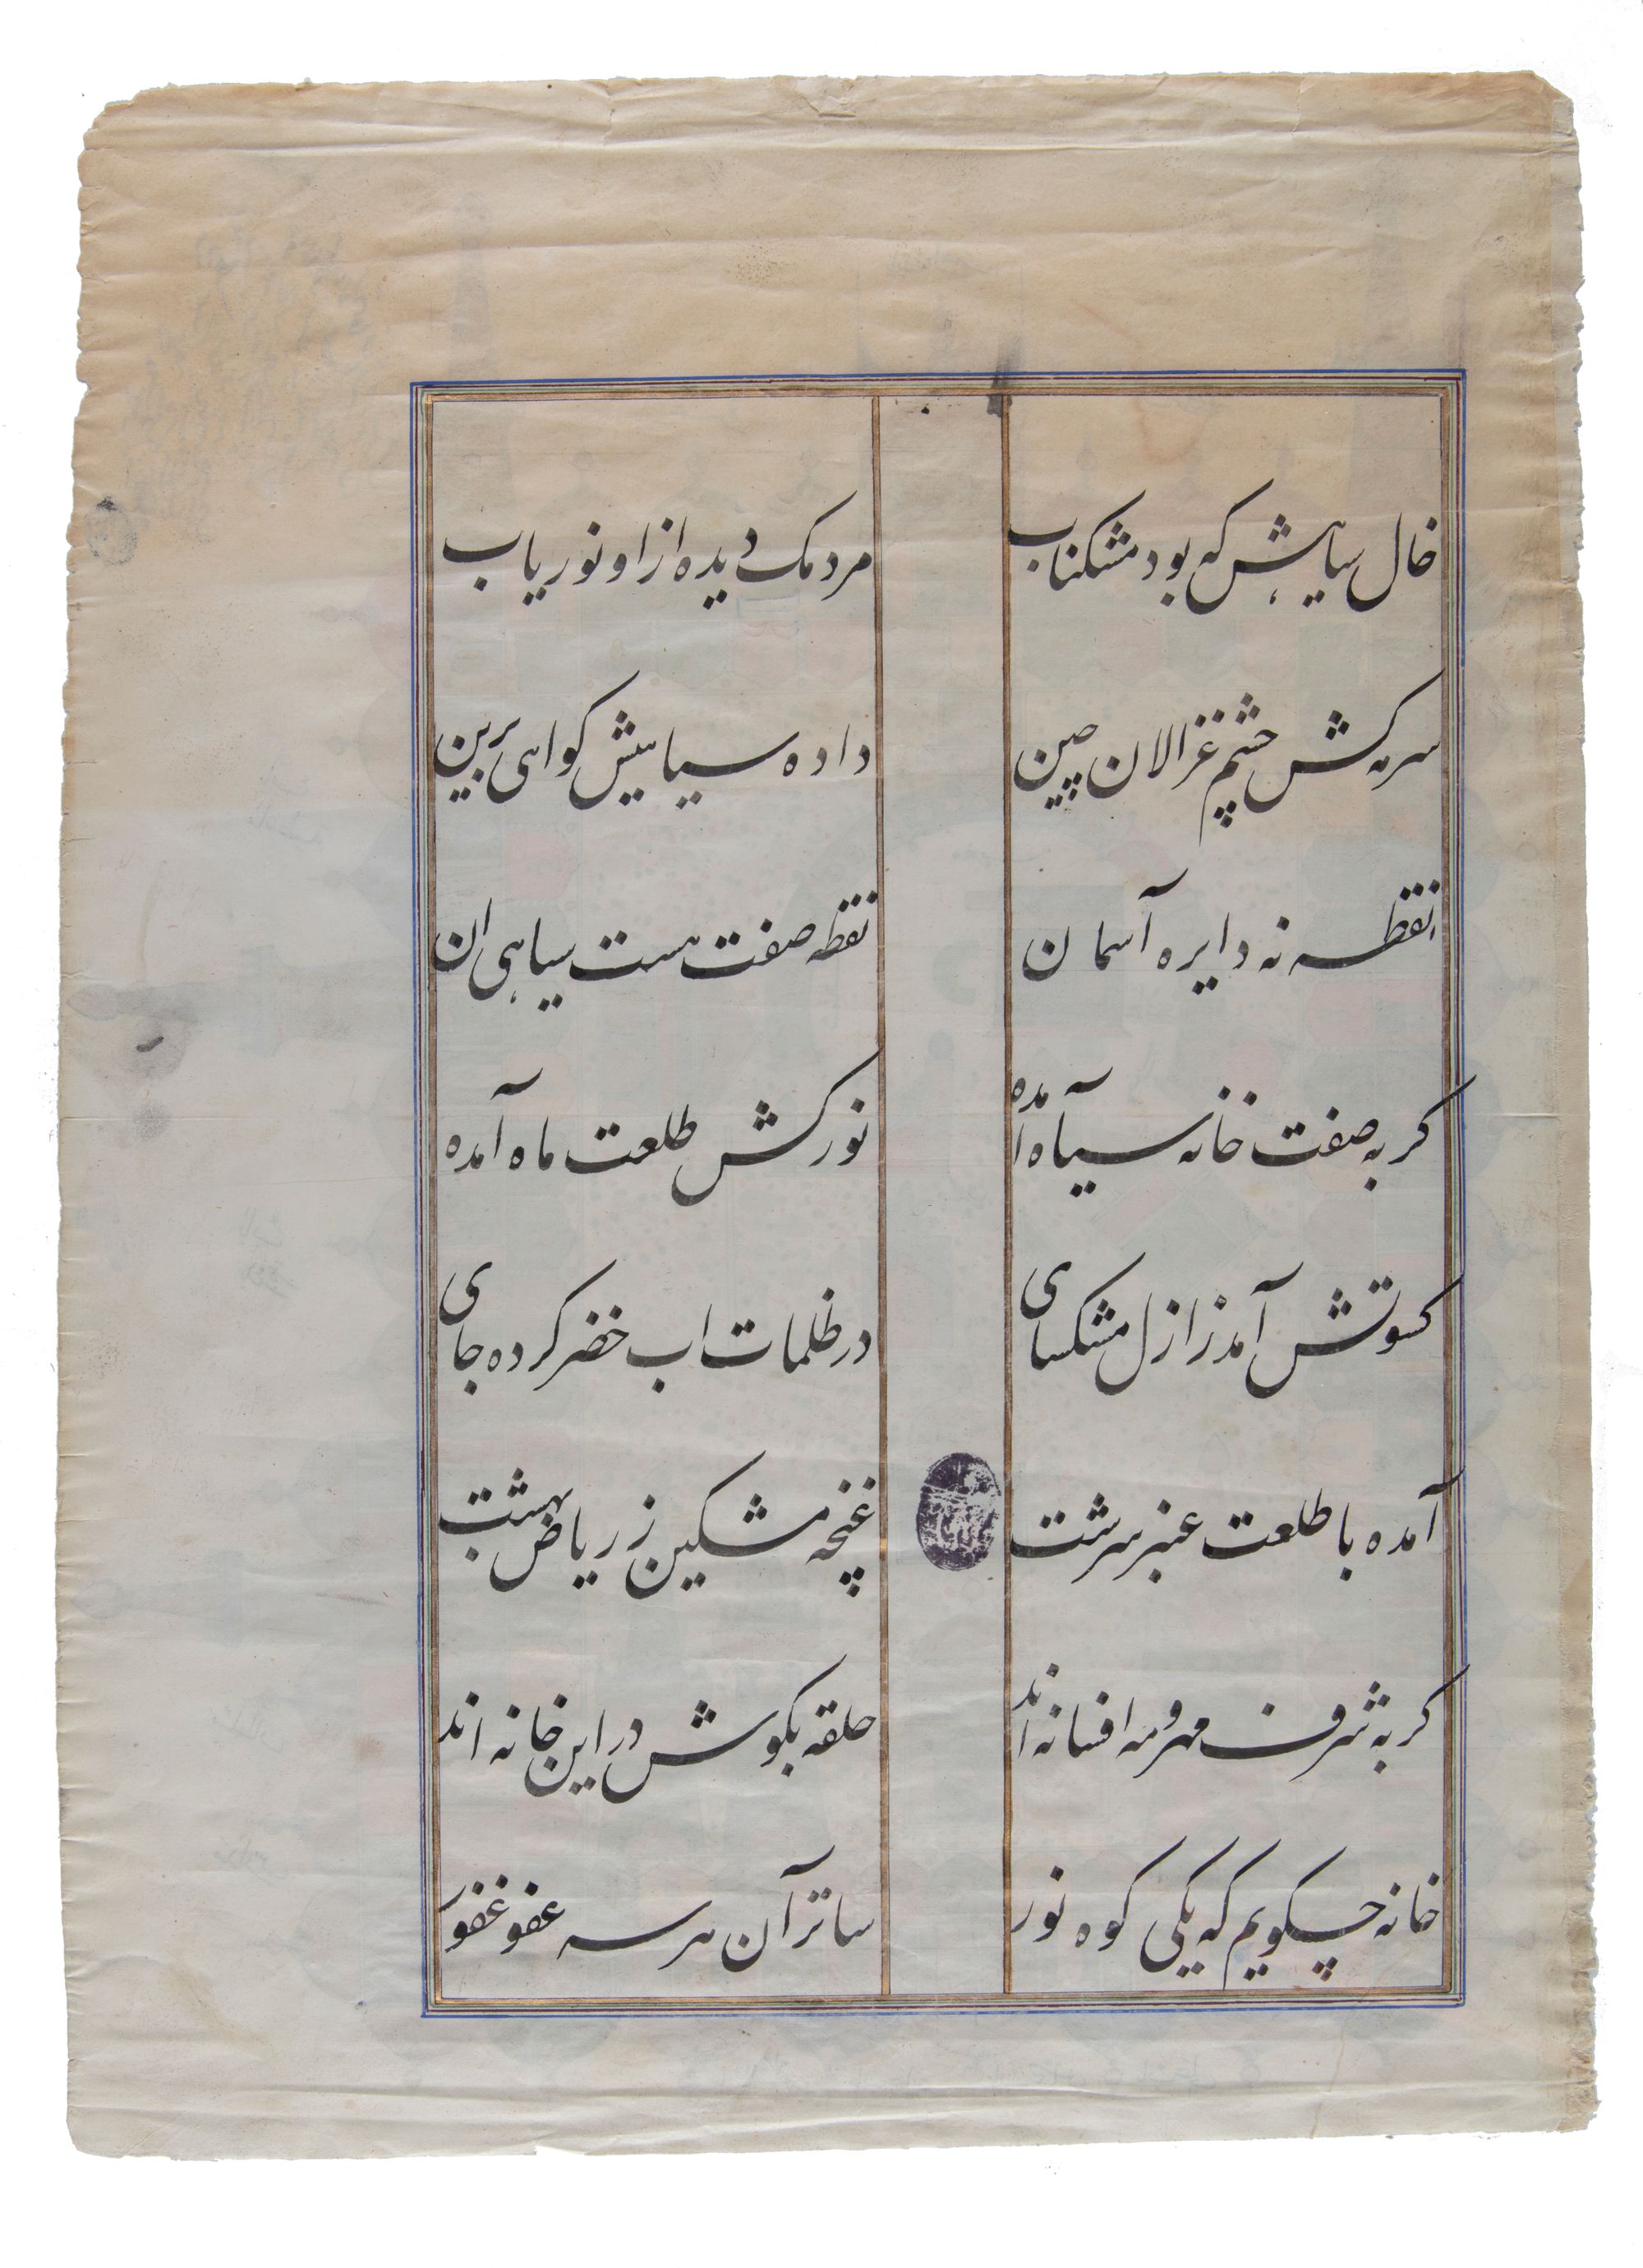 خال سیاهش که بود مشکناب
مردمک دیده از او نور یاب
سرمه کش چشم غزالان چین
داده سیاهیش کواهی برین
نقطه نه دایره آسمان
نقطه صفت هست سیاهی ان
کر به صفت خانه سیاه آمده
نور کش طلعت ماه آمده
کسوتش آمد ز ازل مشکسای
در ظلمات اب خضر کرده جای
آمده با طلعت عنبر سرشت
غنچه مشکین ز ریاض بهشت
کر به شرف مهر و مه افسانه اند
حلقه بکوش در این خانه اند
خانه چکویم که یکی کوه نور
ساتر آن سر سه عفو غفور